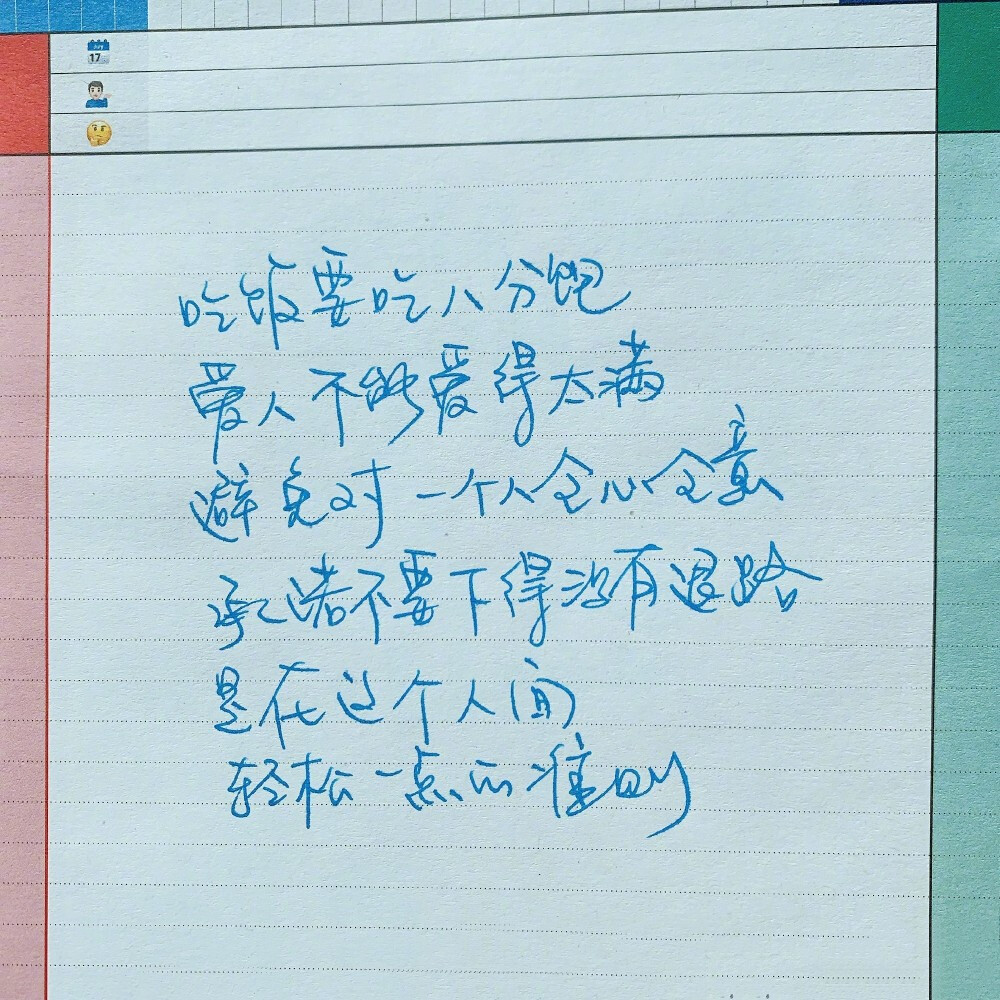 吃饭要吃八分饱
爱人不能爱得太满
避免对一个人全心全意
承诺不要下得没有退路
是在这个人间
轻松一点的准则